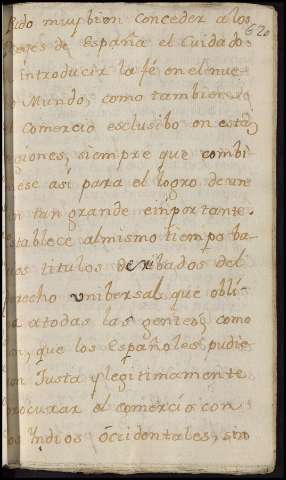 520
pudo muy bien conceder a los
Reyes de España el Cuidado
introducir la fé en el nue
o Mundo, como tambien
l Comercio esclusibo en estas
giones, siempre que combi
iese así para el logro de un
n tan grande e importante.
stablece al mismo tiempo ba
ios titulos deribados del
recho unibersal que obli
a a todas las gentes, como
on, que los Españoles pudie
on Justa y legitimamente
procurar el comercio con
os Yndios Occidentales, sin